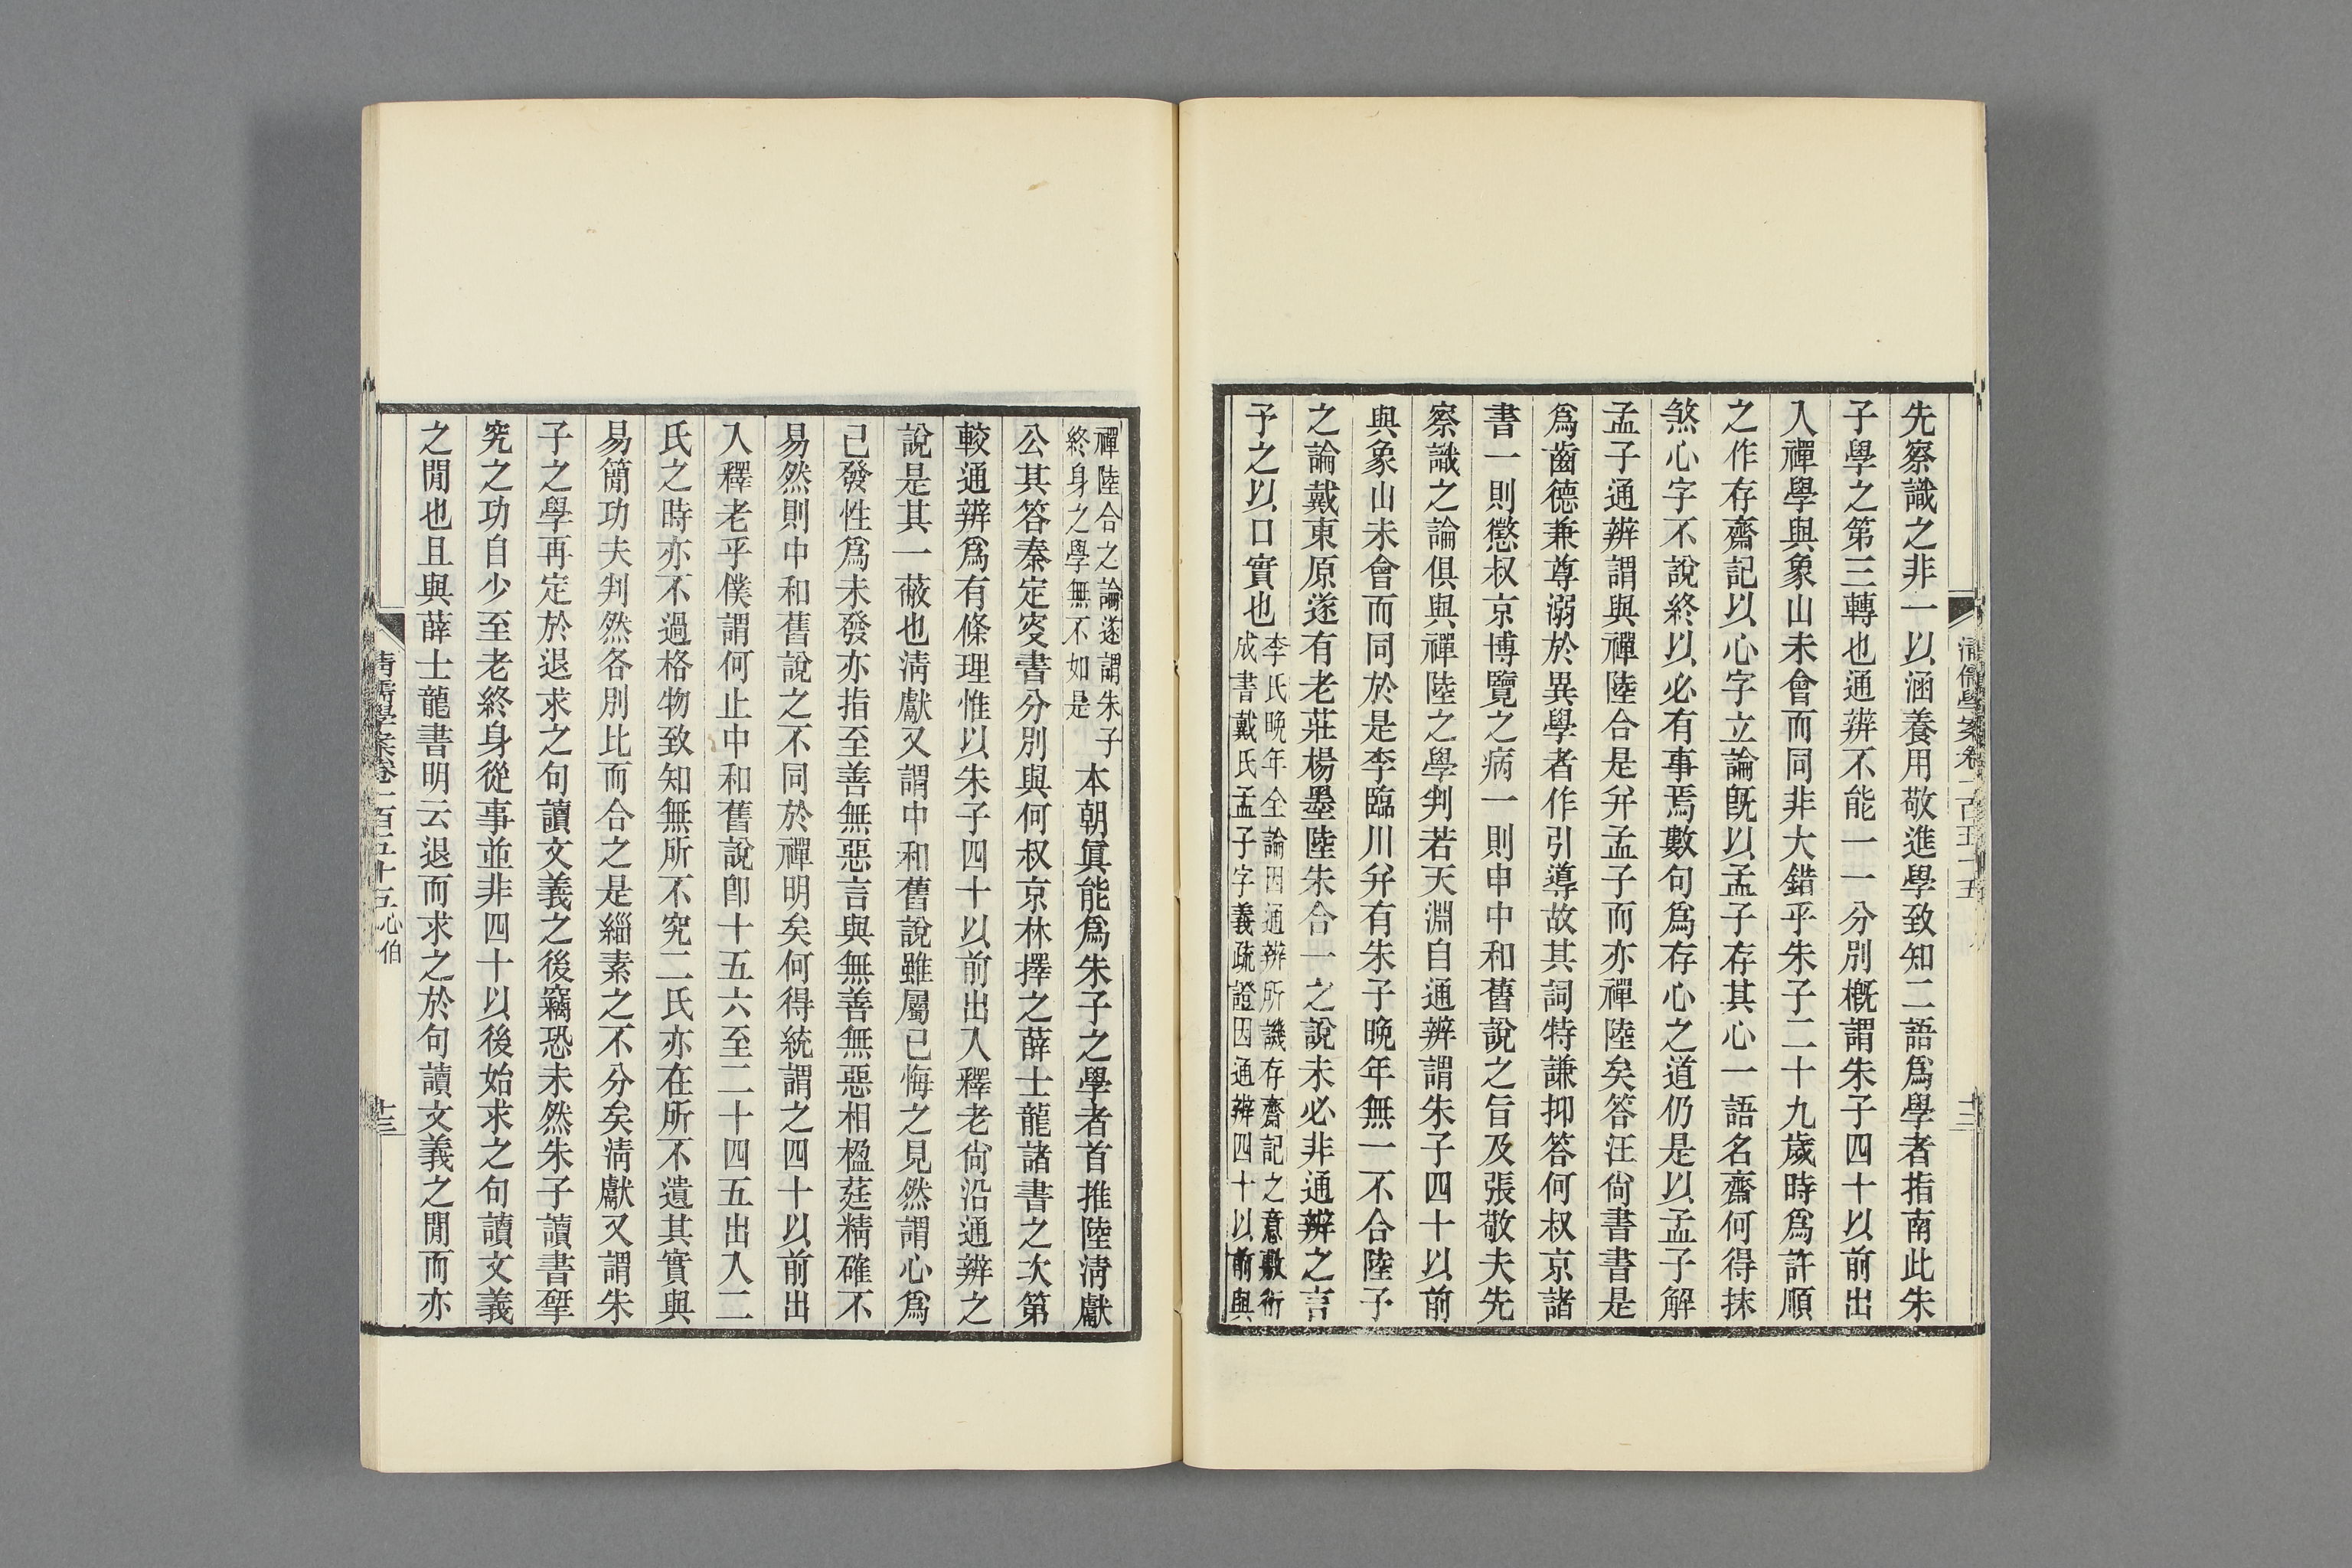 先察識之非一以涵養用敬進學致知二語爲學者指南此朱
子學之第三轉也通辨不能一一分別概謂朱子四十以前出
入禪學與象山未會而同非大錯乎朱子二十九歲時爲許順
之作存齋記以心字立論旣以孟子存其心一語名齋何得抹
煞心字不說終以必有事焉數句爲存心之道仍是以孟子解
孟子通辨謂與禪陸合是幷孟子而亦禪陸矣答汪尙書書是
爲齒德兼尊溺於異學者作引導故其詞特謙抑答何叔京諸
書一則懲叔京博覽之病一則申中和舊說之旨及張敬夫先
察識之論俱與禪陸之學判若天淵自通辨謂朱子四十以前
與象山未會而同於是李臨川幷有朱子晚年無一不合陸子
之論戴東原遂有老莊楊墨陸朱合一之說未必非通辨之言
予之以口實也李氏晚年全論因通辨所譏存齋記之意敷衍
成書戴氏孟子字義疏證因通辨四十以前與
清儒學案卷一百五十五
十三
禪陸合之論遂謂朱子
終身之學無不如是
本朝眞能爲朱子之學者首推陸淸獻
公其答秦定叟書分別與何叔京林擇之薛士龍諸書之次第
較通辨爲有條理惟以朱子四十以前出入釋老尙沿通辨之
說是其一蔽也淸獻又謂中和舊說雖屬已悔之見然謂心爲
已發性爲未發亦指至善無惡言與無善無惡相楹莛精確不
易然則中和舊說之不同於禪明矣何得統謂之四十以前出
入釋老乎僕謂何止中和舊說卽十五六至二十四五出入二
氏之時亦不過格物致知無所不究二氏亦在所不遺其實與
易簡功夫判然各別比而合之是緇素之不分矣淸獻又謂朱
子之學再定於退求之句讀文義之後竊恐未然朱子讀書揅
究之功自少至老終身從事並非四十以後始求之句讀文義
之閒也且與薛士龍書明云退而求之於句讀文義之閒而亦
清儒學案卷一百五十五心伯
十三